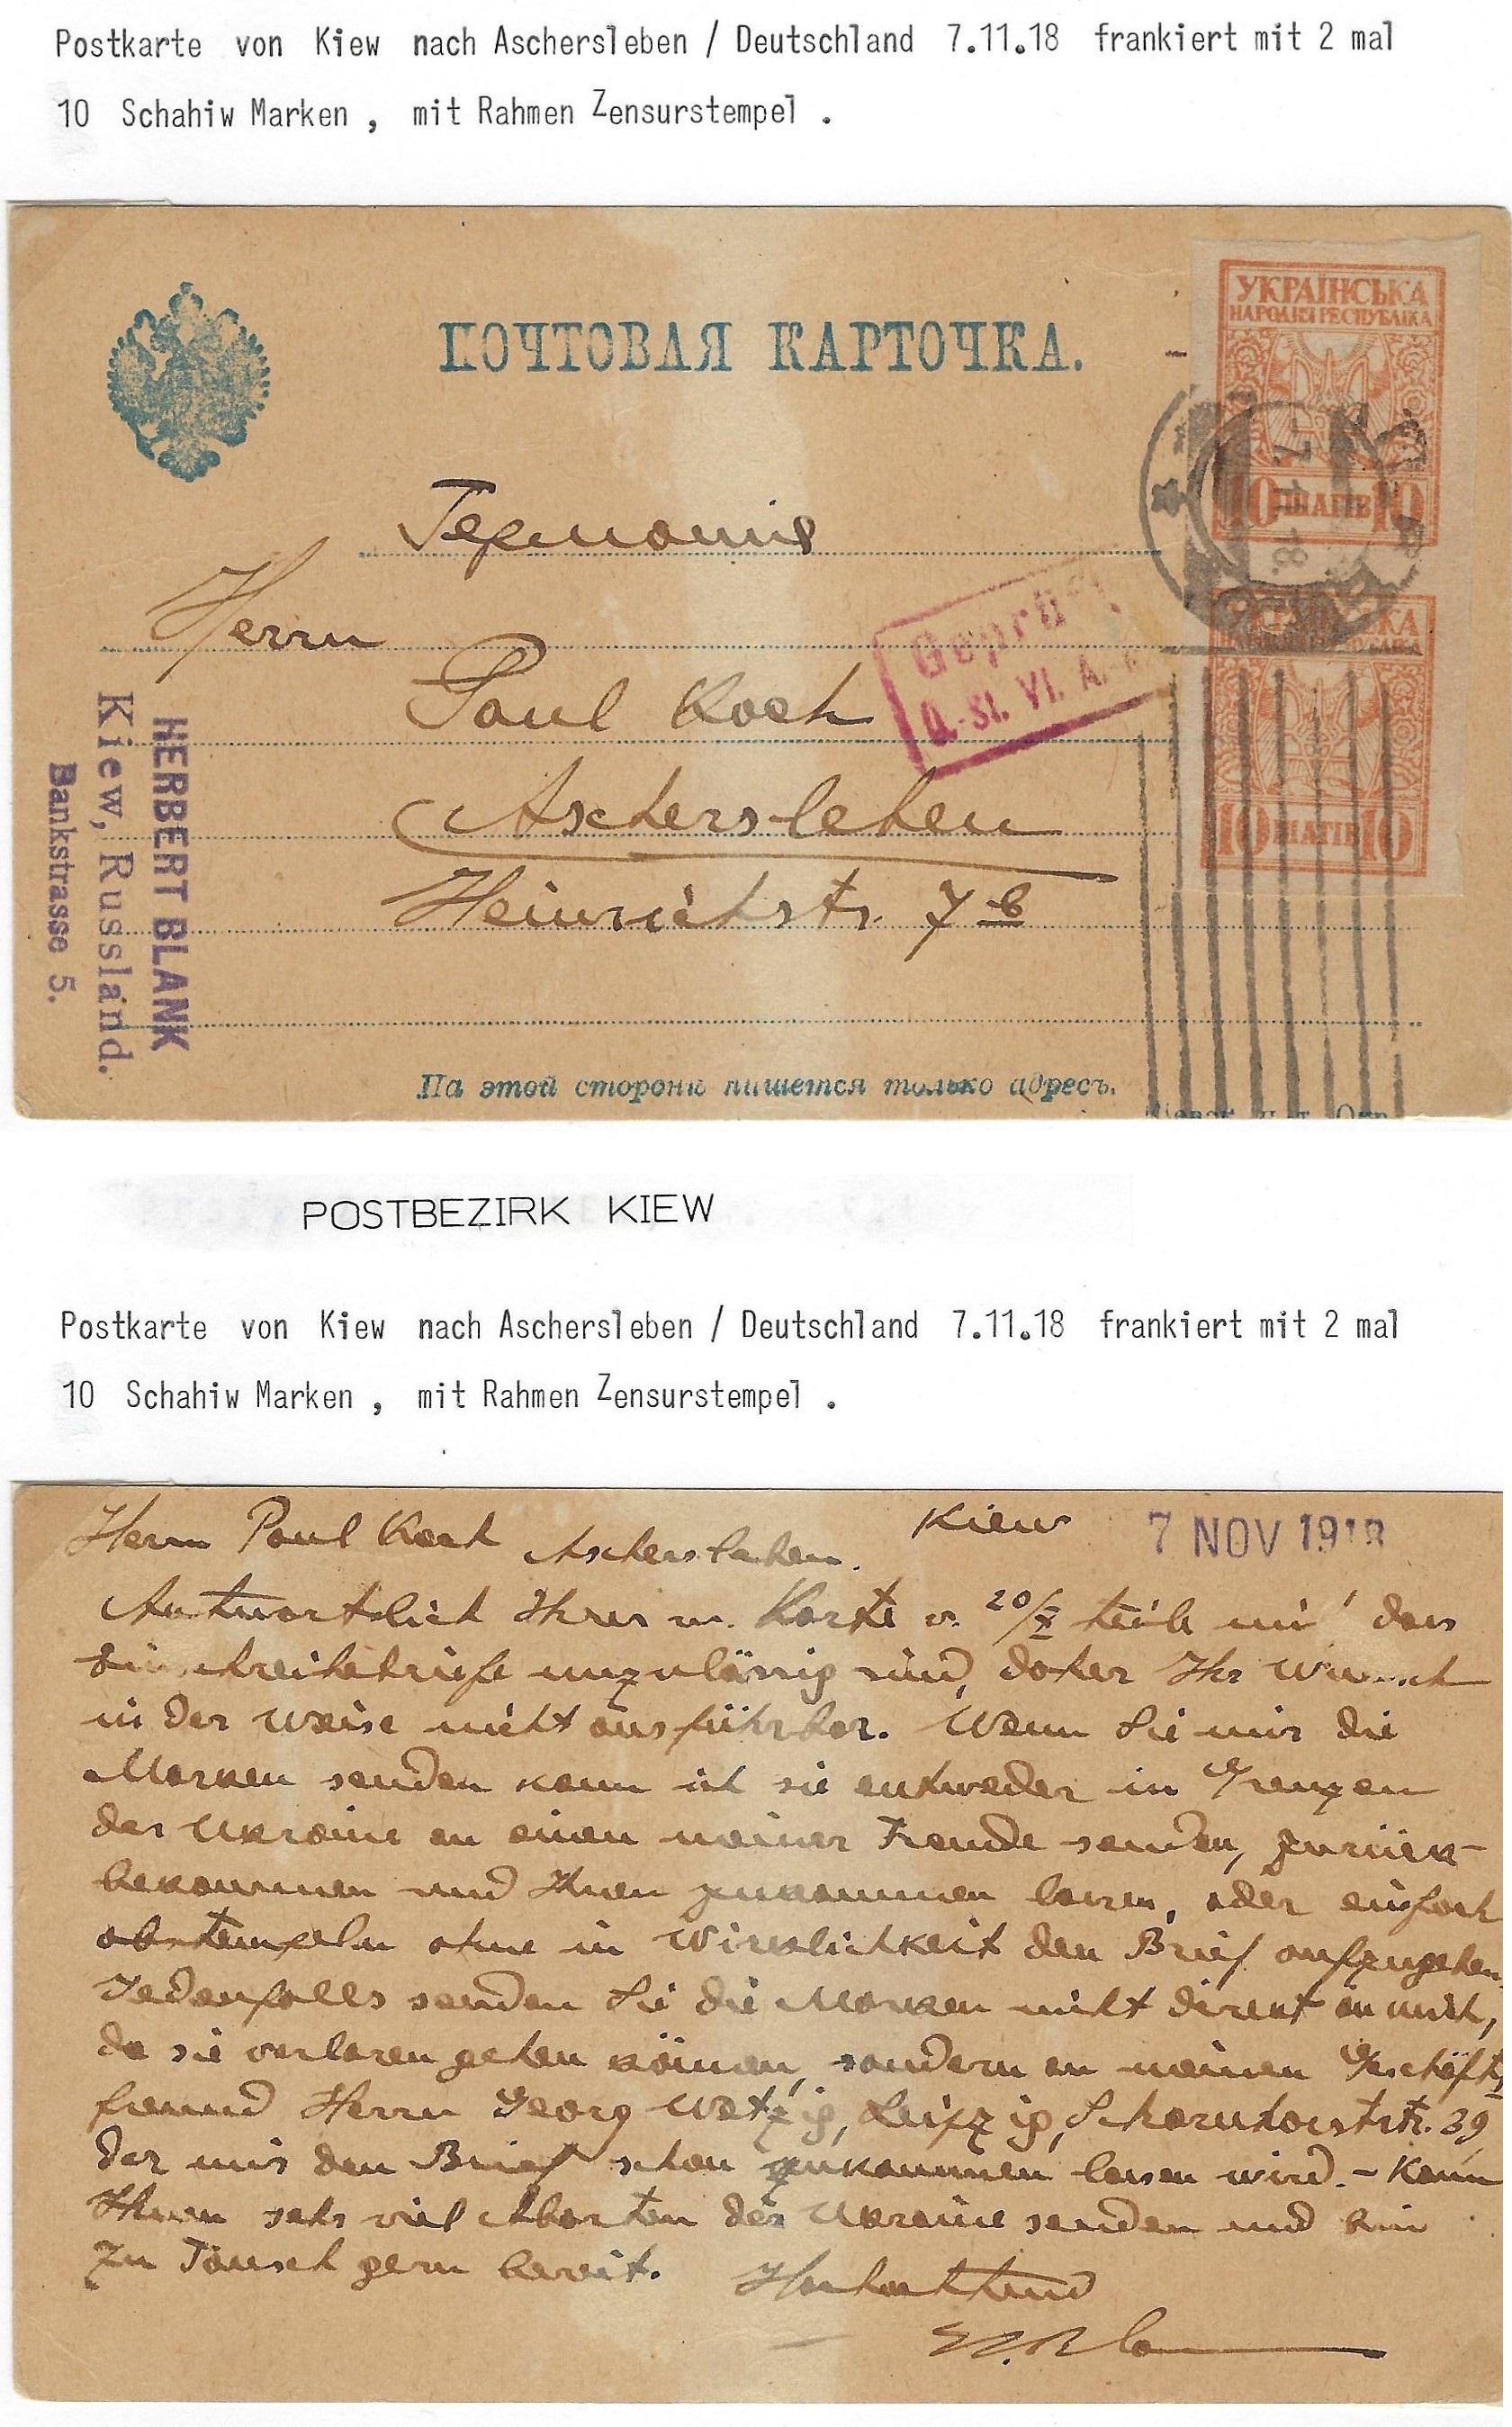 Postkarte von Kiew nach Aschersleben / Deutschland 7.11.18 frankiert mit 2 mal
10 Schahiw Marken , mit Rahmen Zensurstempel .
ПОЧТОВАЯ КАРТОЧКА.
УКРАЇНСЬКА
НАРОДНЯ РЕСПУБЛІКА
10 ШАГІВ 10
7. 11. 18.
Германія
Herrn
Paul Koch
Aschersleben
Heinrichstr. 7 b
Geprüft
Ü.-St. VI. A.
УКРАЇНСЬКА
10 ШАГІВ 10
HERBERT BLANK
Kiew, Russland.
Bankstrasse 5.
На этой сторонѣ пишется только адресъ.
POSTBEZIRK KIEW
Postkarte von Kiew nach Aschersleben / Deutschland 7.11.18 frankiert mit 2 mal
10 Schahiw Marken , mit Rahmen Zensurstempel .
Herrn Paul Koch Aschersleben. Kiew 7 NOV 1918
Antwortlich Ihrer w. Karte v. 20/X teile mit dass
Einschreibebriefe unzulässig sind, daher Ihr Wunsch
in der Weise nicht ausführbar. Wenn Sie mir die
Marken senden kann ich sie entweder in Grenzen
der Ukraine an einen meiner Freunde senden, zurück-
bekommen und Ihnen zukommen lassen, oder einfach
abstempeln ohne in Wirklichkeit den Brief aufzugeben.
Jedenfalls senden Sie die Marken nicht direkt an mich,
da sie verloren gehen können, sondern an meinen Geschäfts
freund Herrn Georg Wetzig, Leipzig, Scharnhorststr. 39,
der mir den Brief schon zukommen lassen wird. - Kann
Ihnen sehr viel Abarten der Ukraine senden und bin
zu Tausch gern bereit. Hochachtend